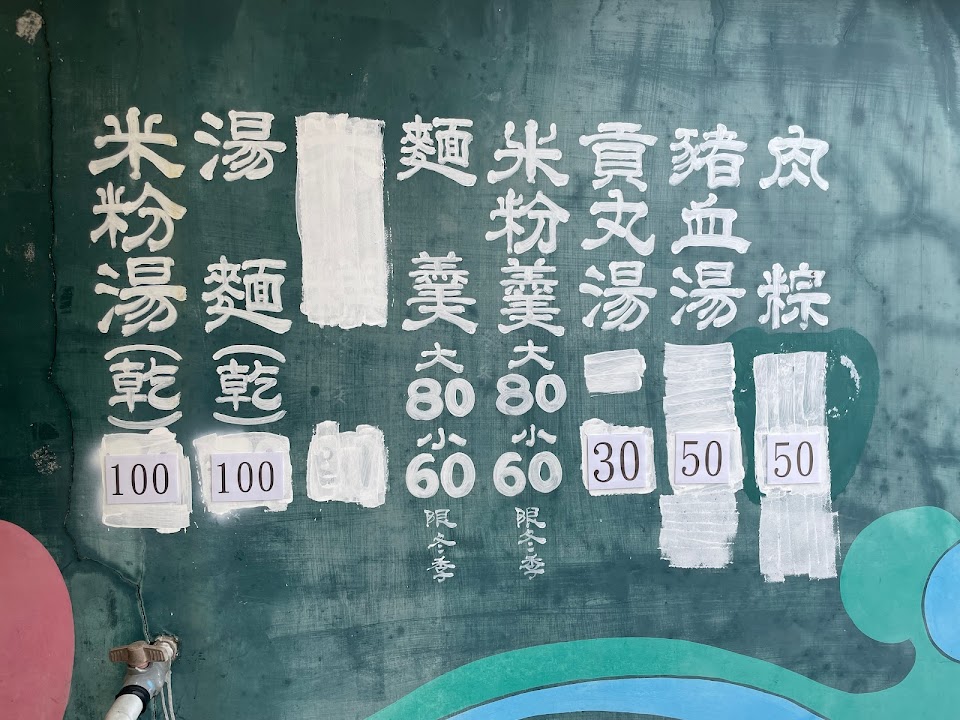 肉粽 50
豬血湯 50
貢丸湯 30
米粉羹 大80 小60 限冬季
麵羹 大80 小60 限冬季
湯麵(乾) 100
米粉湯(乾) 100